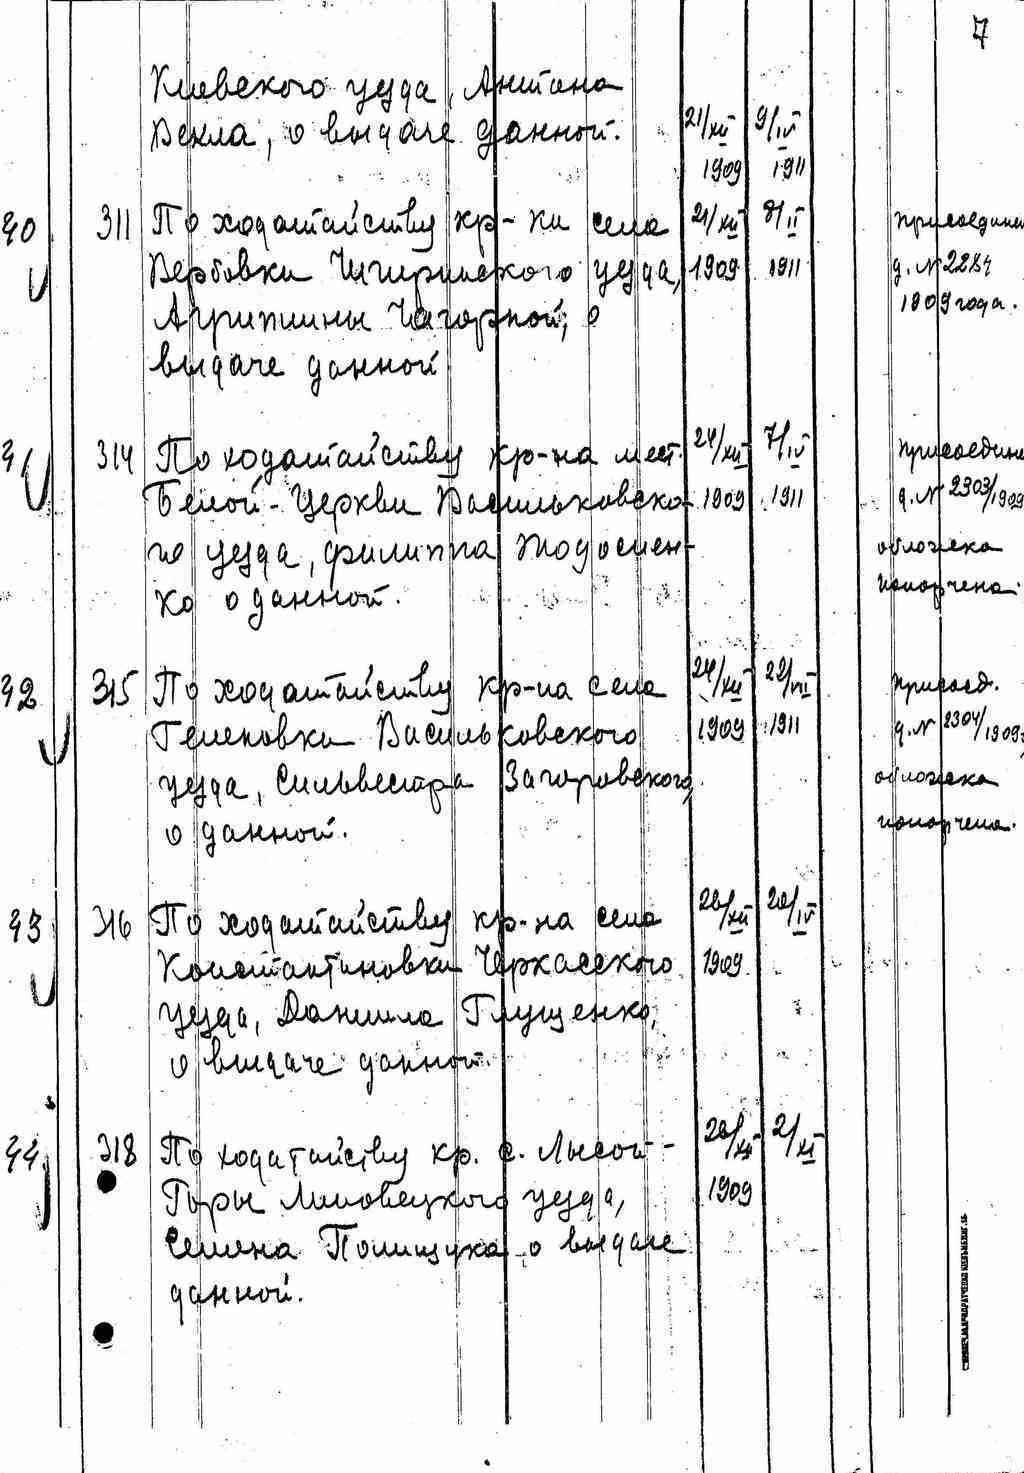 7
Киевского уезда, Антона
Векла, о выдаче данной. 21/XII 9/IV
1909 1911
40 311 По ходатайству кр-ки села 21/XII 8/II присоединен
Вербовки Чигиринского уезда, 1909 1911 д. № 2284
Агрипины Чагорной, о 1909 года.
выдаче данной
41 314 По ходатайству кр-на мест. 24/XII 7/IV присоедине
Белой-Церкви Васильковско- 1909 1911 д. № 2303/1909
го уезда, Филиппа обложека
ко о данной. попорчена.
42 315 По ходатайству кр-на села 24/XII 22/VII присоед.
Геленовки Васильковского 1909 1911 д. № 2304/1909
уезда, Сильвестра Загоровского, обложека
о данной. попорчена.
43 316 По ходатайству кр-на села 28/XII 20/IV
Константиновки Черкасского 1909
уезда, Даниила Глущенко,
о выдаче данной.
44. 318 По ходатайству кр. с. Лысой- 28/XII 2/XI
Горы Липовецкого уезда, 1909
Семена Полищука о выдаче
данной.